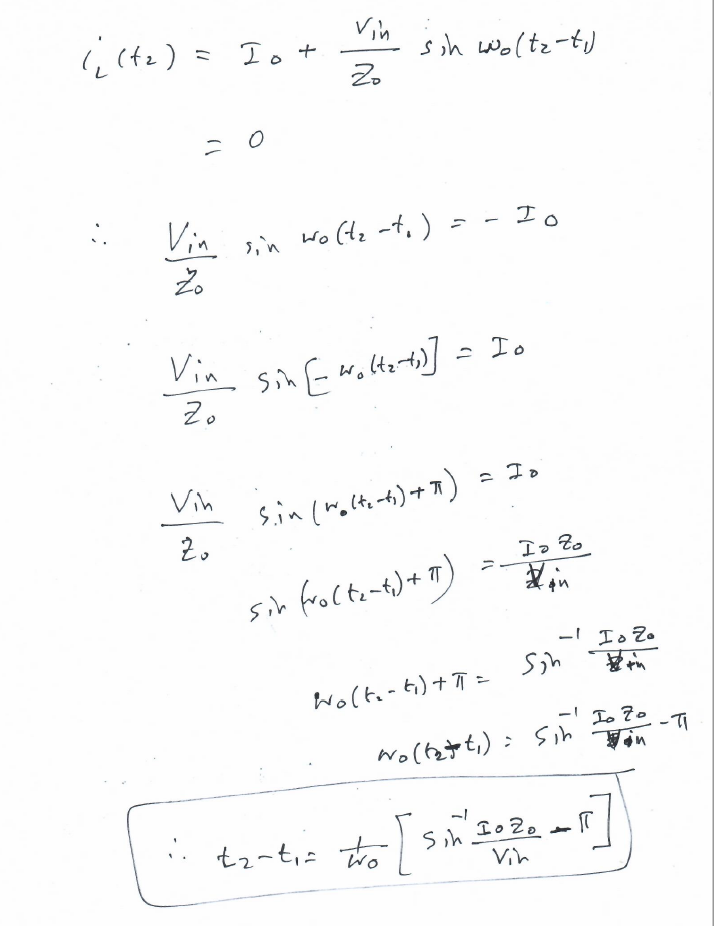 i_L(t2) = Io + Vin/Zo sin wo(t2-t1)
= 0
∴ Vin/Zo sin wo(t2-t1) = - Io
Vin/Zo sin[-wo(t2-t1)] = Io
Vin/Zo sin(wo(t2-t1)+π) = Io
sin(wo(t2-t1)+π) = IoZo/Vin
wo(t2-t1)+π = sin^-1 IoZo/Vin
wo(t2-t1) = sin^-1 IoZo/Vin - π
∴ t2-t1 = 1/wo [sin^-1 IoZo/Vin - π]